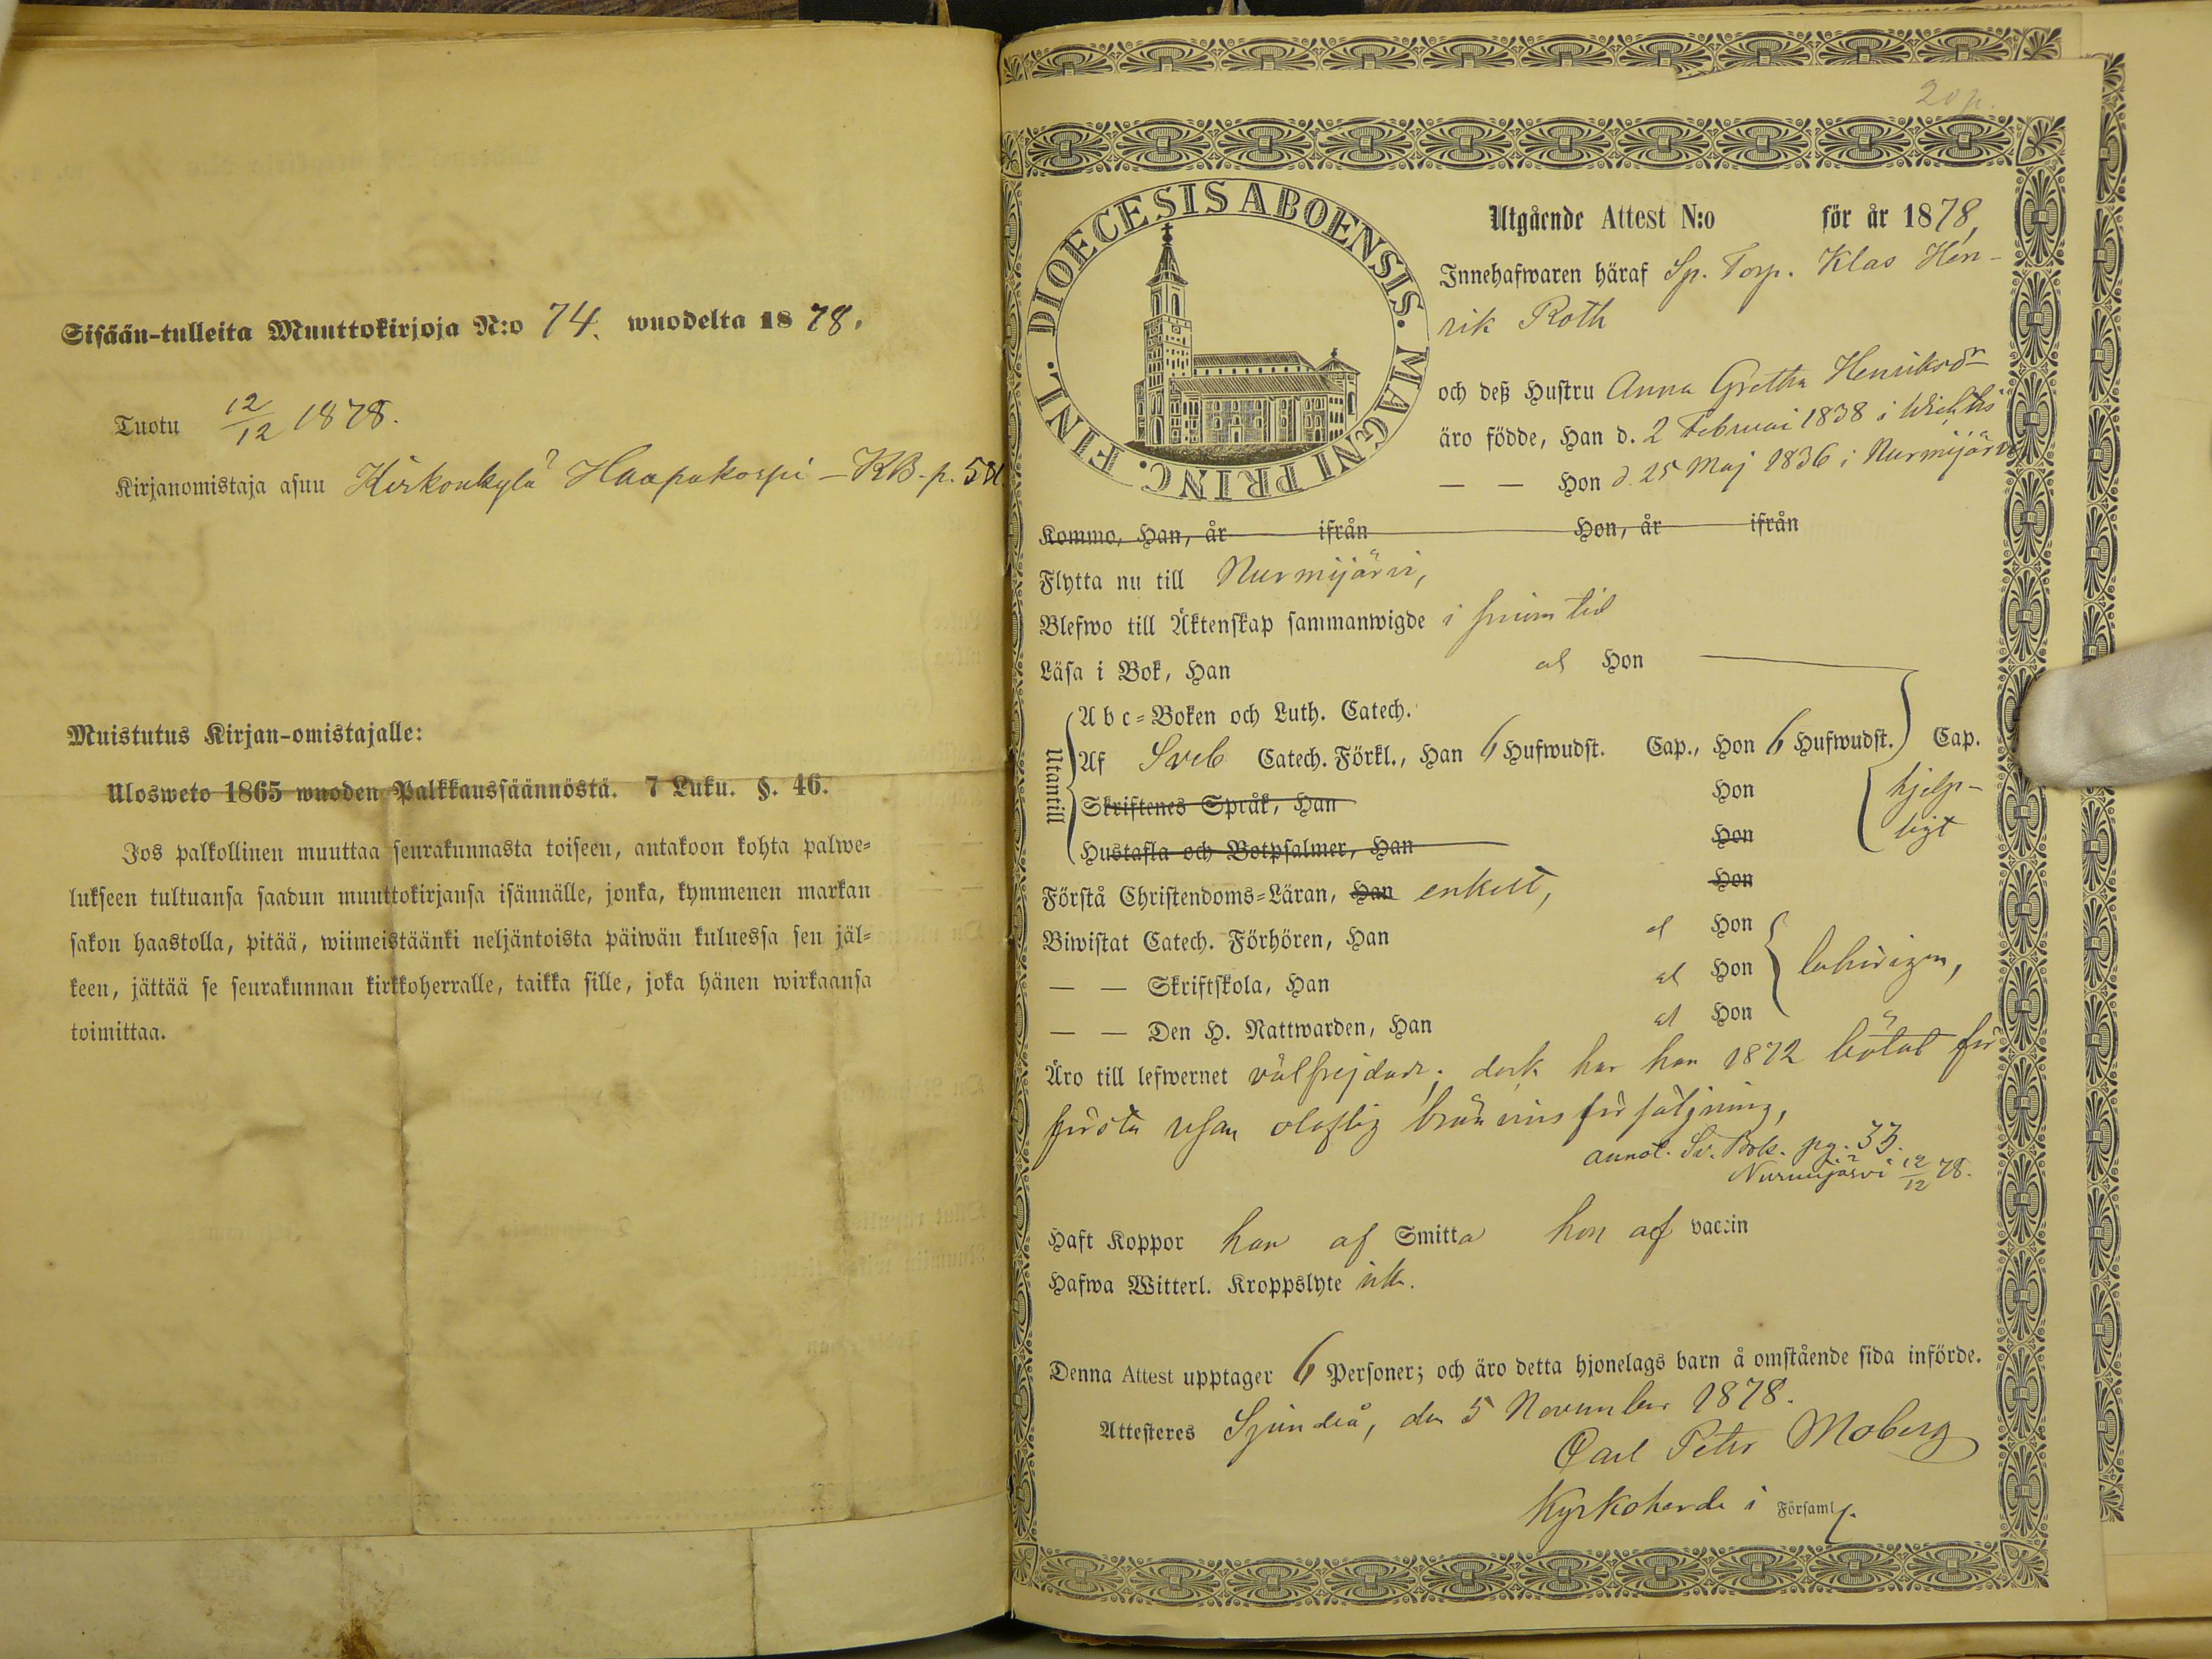 Sisään-tulleita Muuttokirjoja N:o 74. wuodelta 1878.
Tuotu 12/12 1878.
Kirjanomistaja asuu Kirkonkylä Haapakorpi – KB. p.
Muistutus Kirjan-omistajalle:
Ulosweto 1865 wuoden Palkkaussäännöstä. 7 Luku. §. 46.
Jos palkollinen muuttaa seurakunnasta toiseen, antakoon kohta palwe-
lukseen tultuansa saadun muuttokirjansa isännälle, jonka, kymmenen markan
sakon haastolla, pitää, wiimeistäänki neljäntoista päiwän kuluessa sen jäl-
keen, jättää se seurakunnan kirkkoherralle, taikka sille, joka hänen wirkaansa
toimittaa.
20 p.
DIOECESIS ABOENSIS. MAGNI PRINC. FINL.
Utgående Attest N:o för år 1878,
Innehafwaren häraf Sp. Torp. Klas Hen-
rik Roth
och deß Hustru Anna Gretha Henriksdr
äro födde, Han d. 2 Februari 1838 i Wichtis
— — Hon d. 25 Maj 1836 i Nurmijärvi
Kommo, Han, år ifrån Hon, år ifrån
Flytta nu till Nurmijärvi,
Blefwo till Äktenskap sammanwigde i tid
Läsa i Bok, Han Hon
Utantill
Abc-Boken och Luth. Catech.
Af Sveb Catech. Förkl., Han 6 Hufwudst. Cap., Hon 6 Hufwudst. Cap.
Skriftenes Språk, Han Hon
hjelp-
ligt
Hustafla och Botpsalmer, Han Hon
Förstå Christendoms-Läran, Han enkelt, Hon
Biwistat Catech. Förhören, Han Hon
— — Skriftskola, Han Hon
— — Den H. Nattwarden, Han Hon
Äro till lefwernet välfrejdade; dock har han 1872 bötat för
första resan olaflig bränvins försäljning,
annot. Sv. Bok. pg. 33.
Nurmijärvi 12/12 78.
Haft Koppor han af Smitta hon af vaccin
Hafwa Witterl. Kroppslyte
Denna Attest upptager 6 Personer; och äro detta hjonelags barn å omstående sida införde.
Attesteres Sjundeå, den 5 November 1878.
Carl Peter Moberg
Kyrkoherde i Församl.